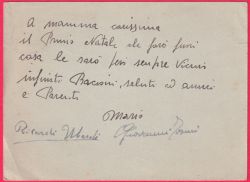 A mamma carissima
il Primo Natale che farò fuori
casa le sarò più sempre vicino
infiniti Bacioni, saluti ad amici
e Parenti
Mario
Giovanni